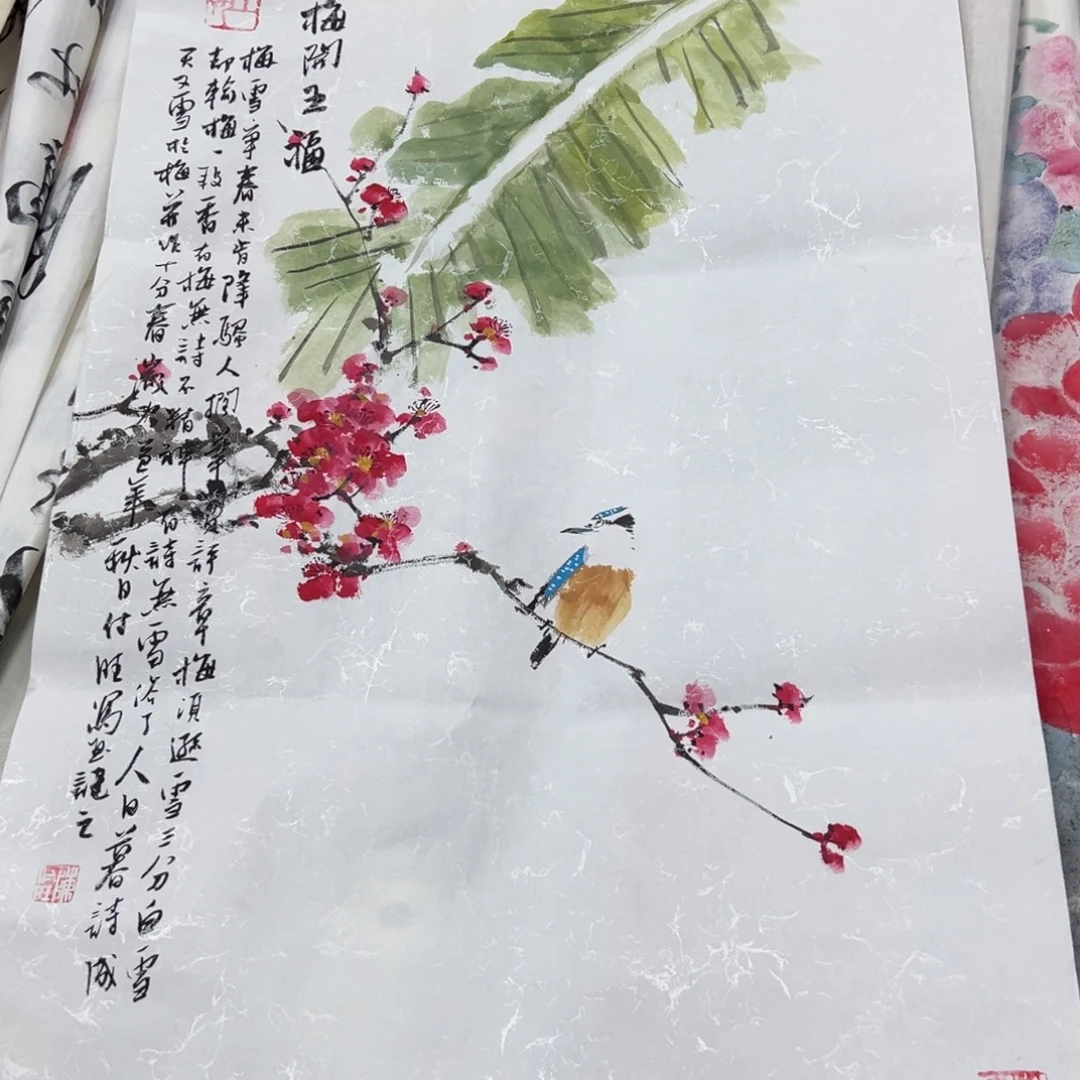 梅開五福
梅雪爭春未肯降騷人擱筆費評章梅須遜雪三分白雪
却輸梅一段香有梅無詩不精神有詩無雪俗了人日暮詩成
天又雪於梅并作十分春歲年秋日付旺寫並記之